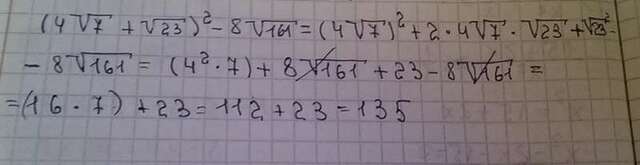 (4√7 + √23)² - 8√161 = (4√7)² + 2·4√7 · √23 + √23² -
- 8√161 = (4²·7) + 8√161 + 23 - 8√161 =
= (16·7) + 23 = 112 + 23 = 135